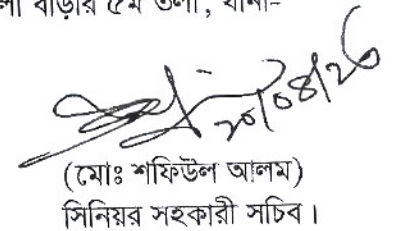 লা বাড়ীর ৫ম তলা, থানা-
২০/০৪/২৬
(মোঃ শফিউল আলম)
সিনিয়র সহকারী সচিব।